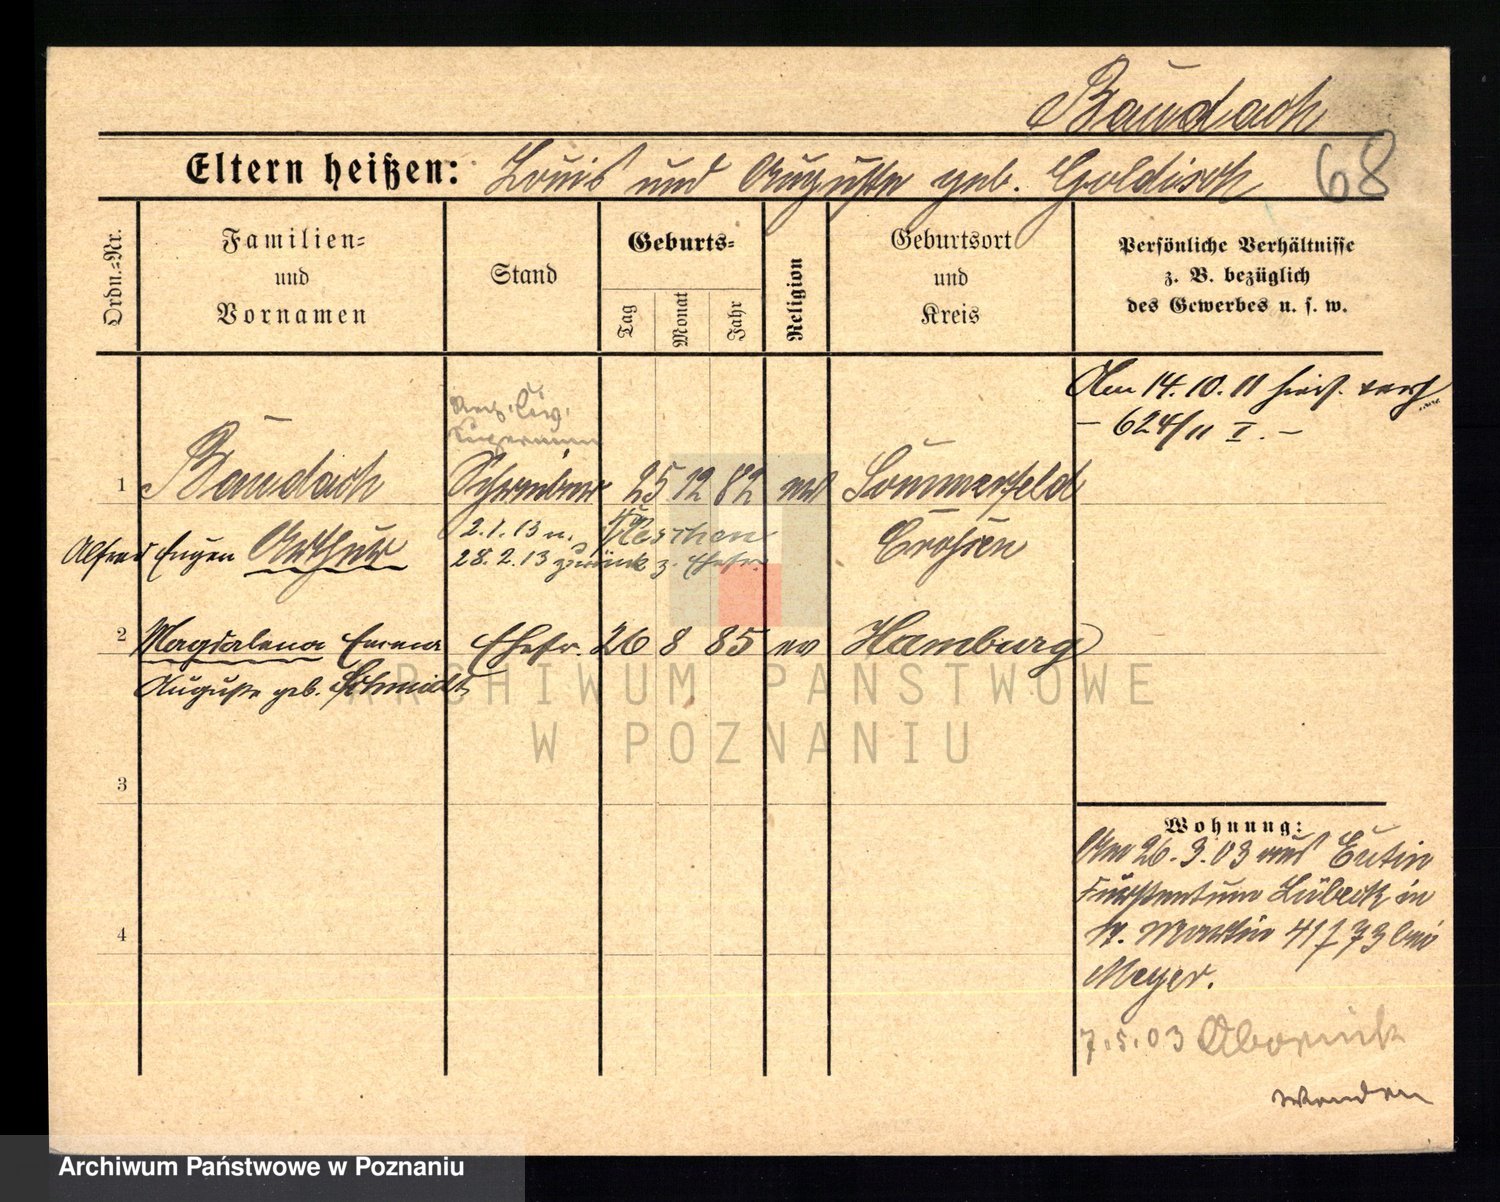 Baudach
Eltern heißen: Louis und Auguste geb. Goldisch
68
Ordn.-Nr.
Familien-
und
Vornamen
Stand
Geburts-
Tag
Monat
Jahr
Religion
Geburtsort
und
Kreis
Persönliche Verhältnisse
z. B. bezüglich
des Gewerbes u. s. w.
Am 14. 10. 11 hies. verh
- 624/11 I. -
1 Baudach Schreiber 25 12 82 ev Sommerfeld
Alfred Eugen Arthur Crossen
2. 1. 13 n. Pleschen
28. 2. 13 zurück z. Ehefr.
2 Magdalena Emma Ehefr. 26 8 85 ev Hamburg
Auguste geb. Schmidt
3
4
Wohnung:
Am 26. 3. 03 aus Eutin
Fürstentum Lübeck in
St. Martin 41 73 bei
Meyer.
7. 5. 03 Obornik
wenden
ARCHIWUM PAŃSTWOWE
W POZNANIU
Archiwum Państwowe w Poznaniu